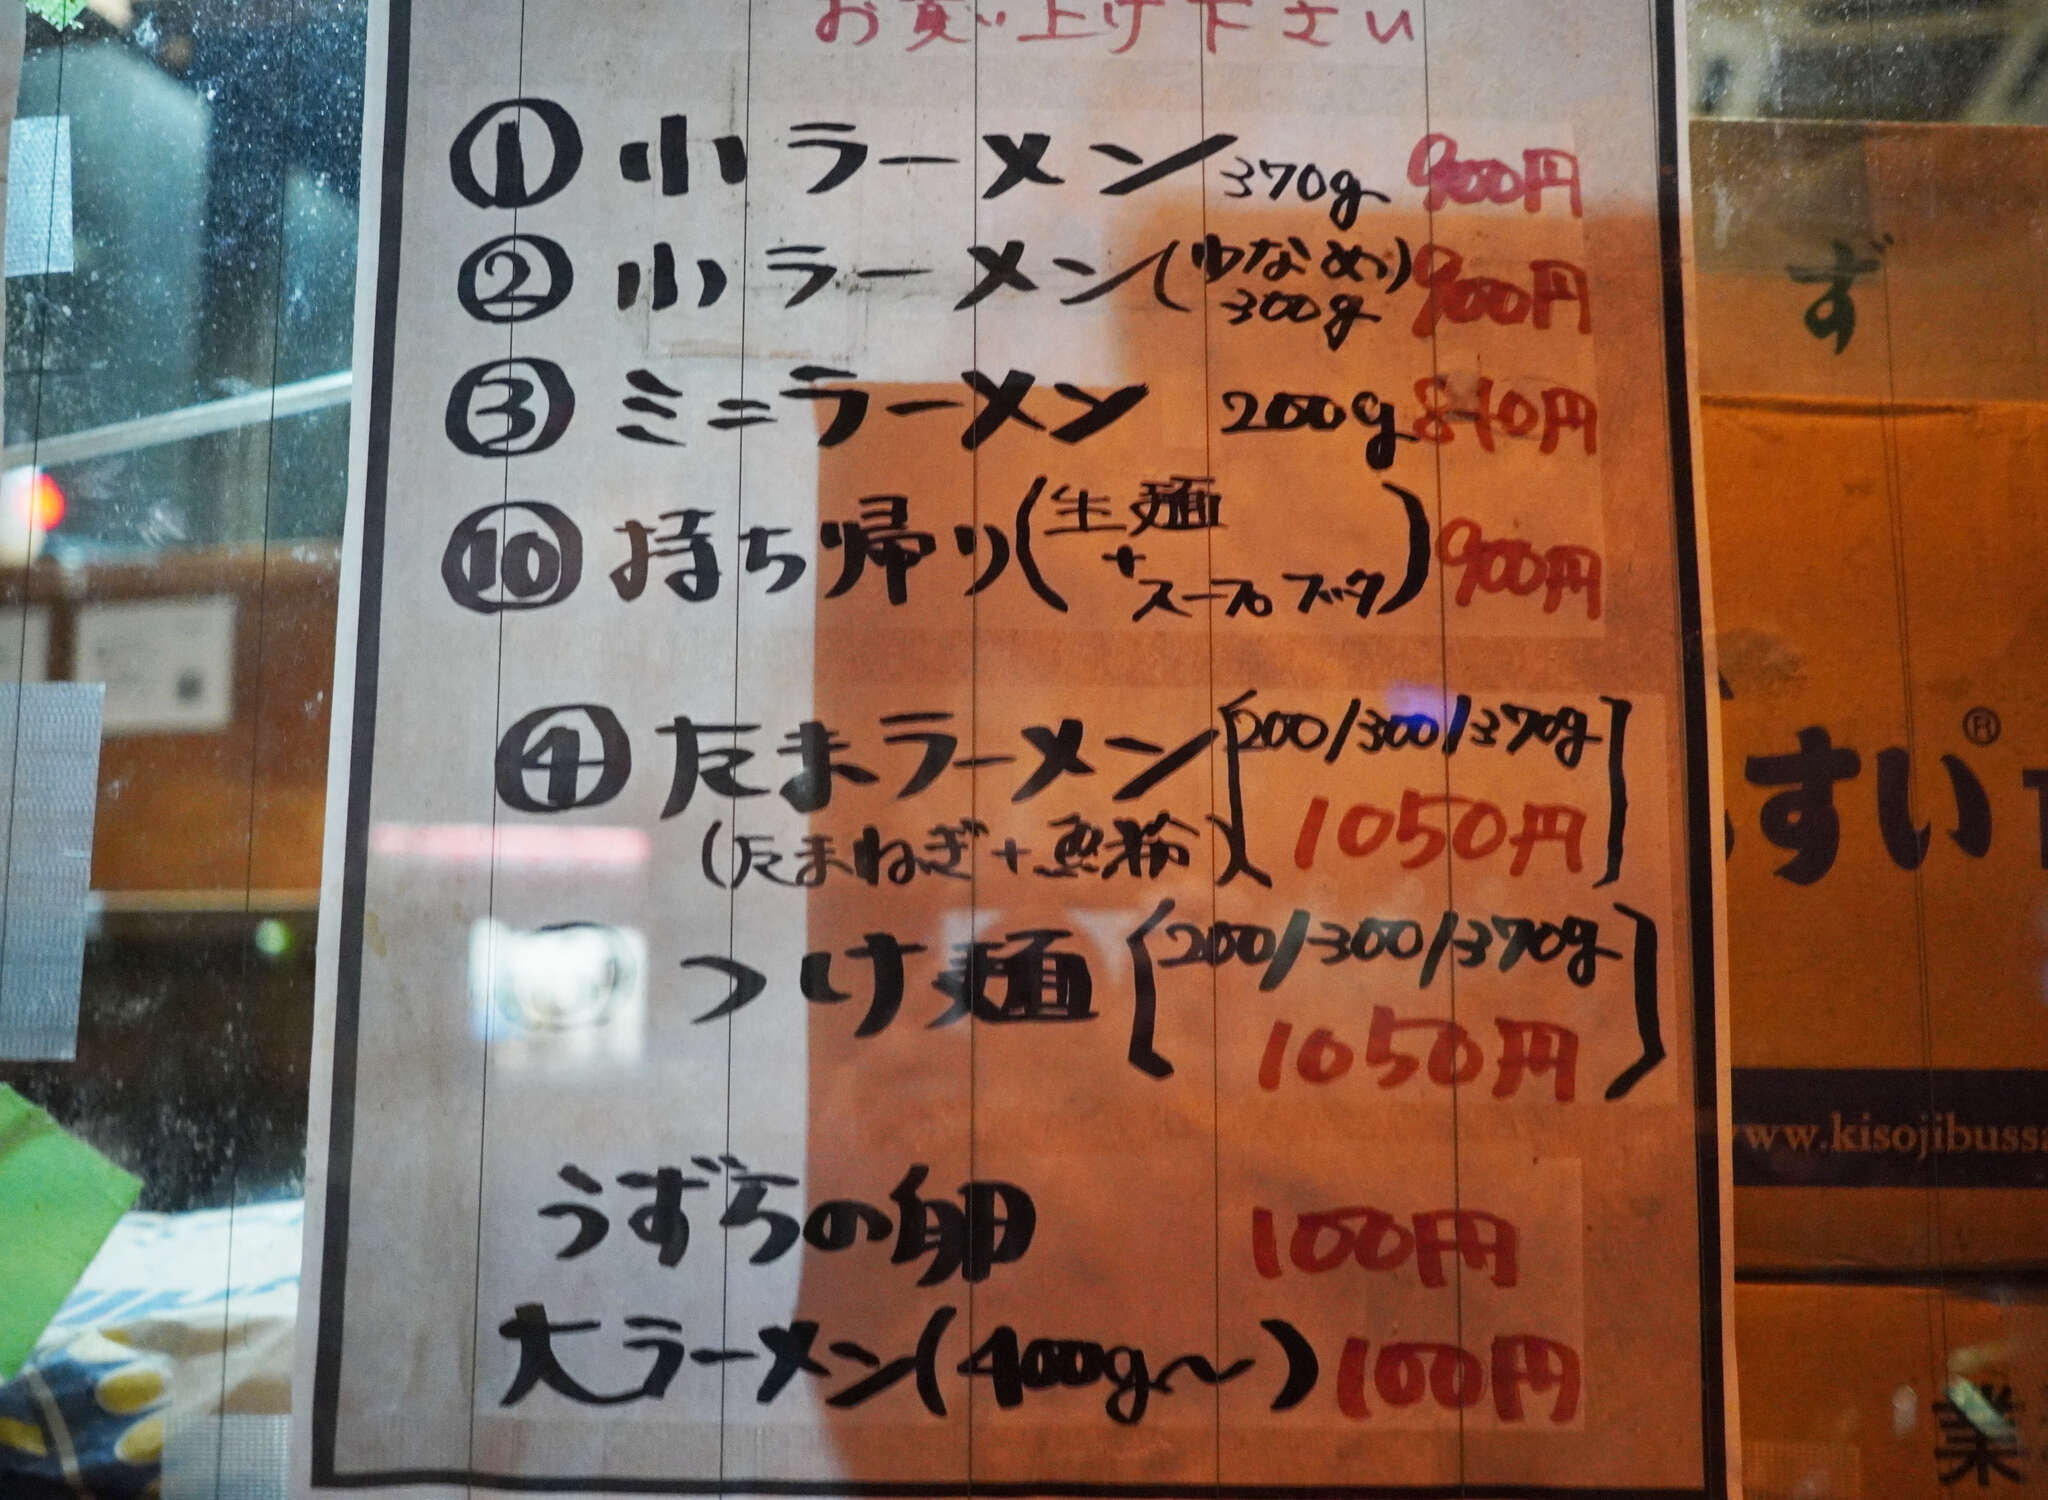 お買い上げ下さい
① 小ラーメン 370g 900円
② 小ラーメン (少なめ) 300g 900円
③ ミニラーメン 200g 840円
⑩ 持ち帰り (生麺 + スープ ブック) 900円
④ たまラーメン [200/300/370g]
(たまねぎ+魚粉) 1050円
つけ麺 [200/300/370g]
1050円
うずらの卵 100円
大ラーメン(400g〜) 100円
ず
すい®
www.kisojibuss
業